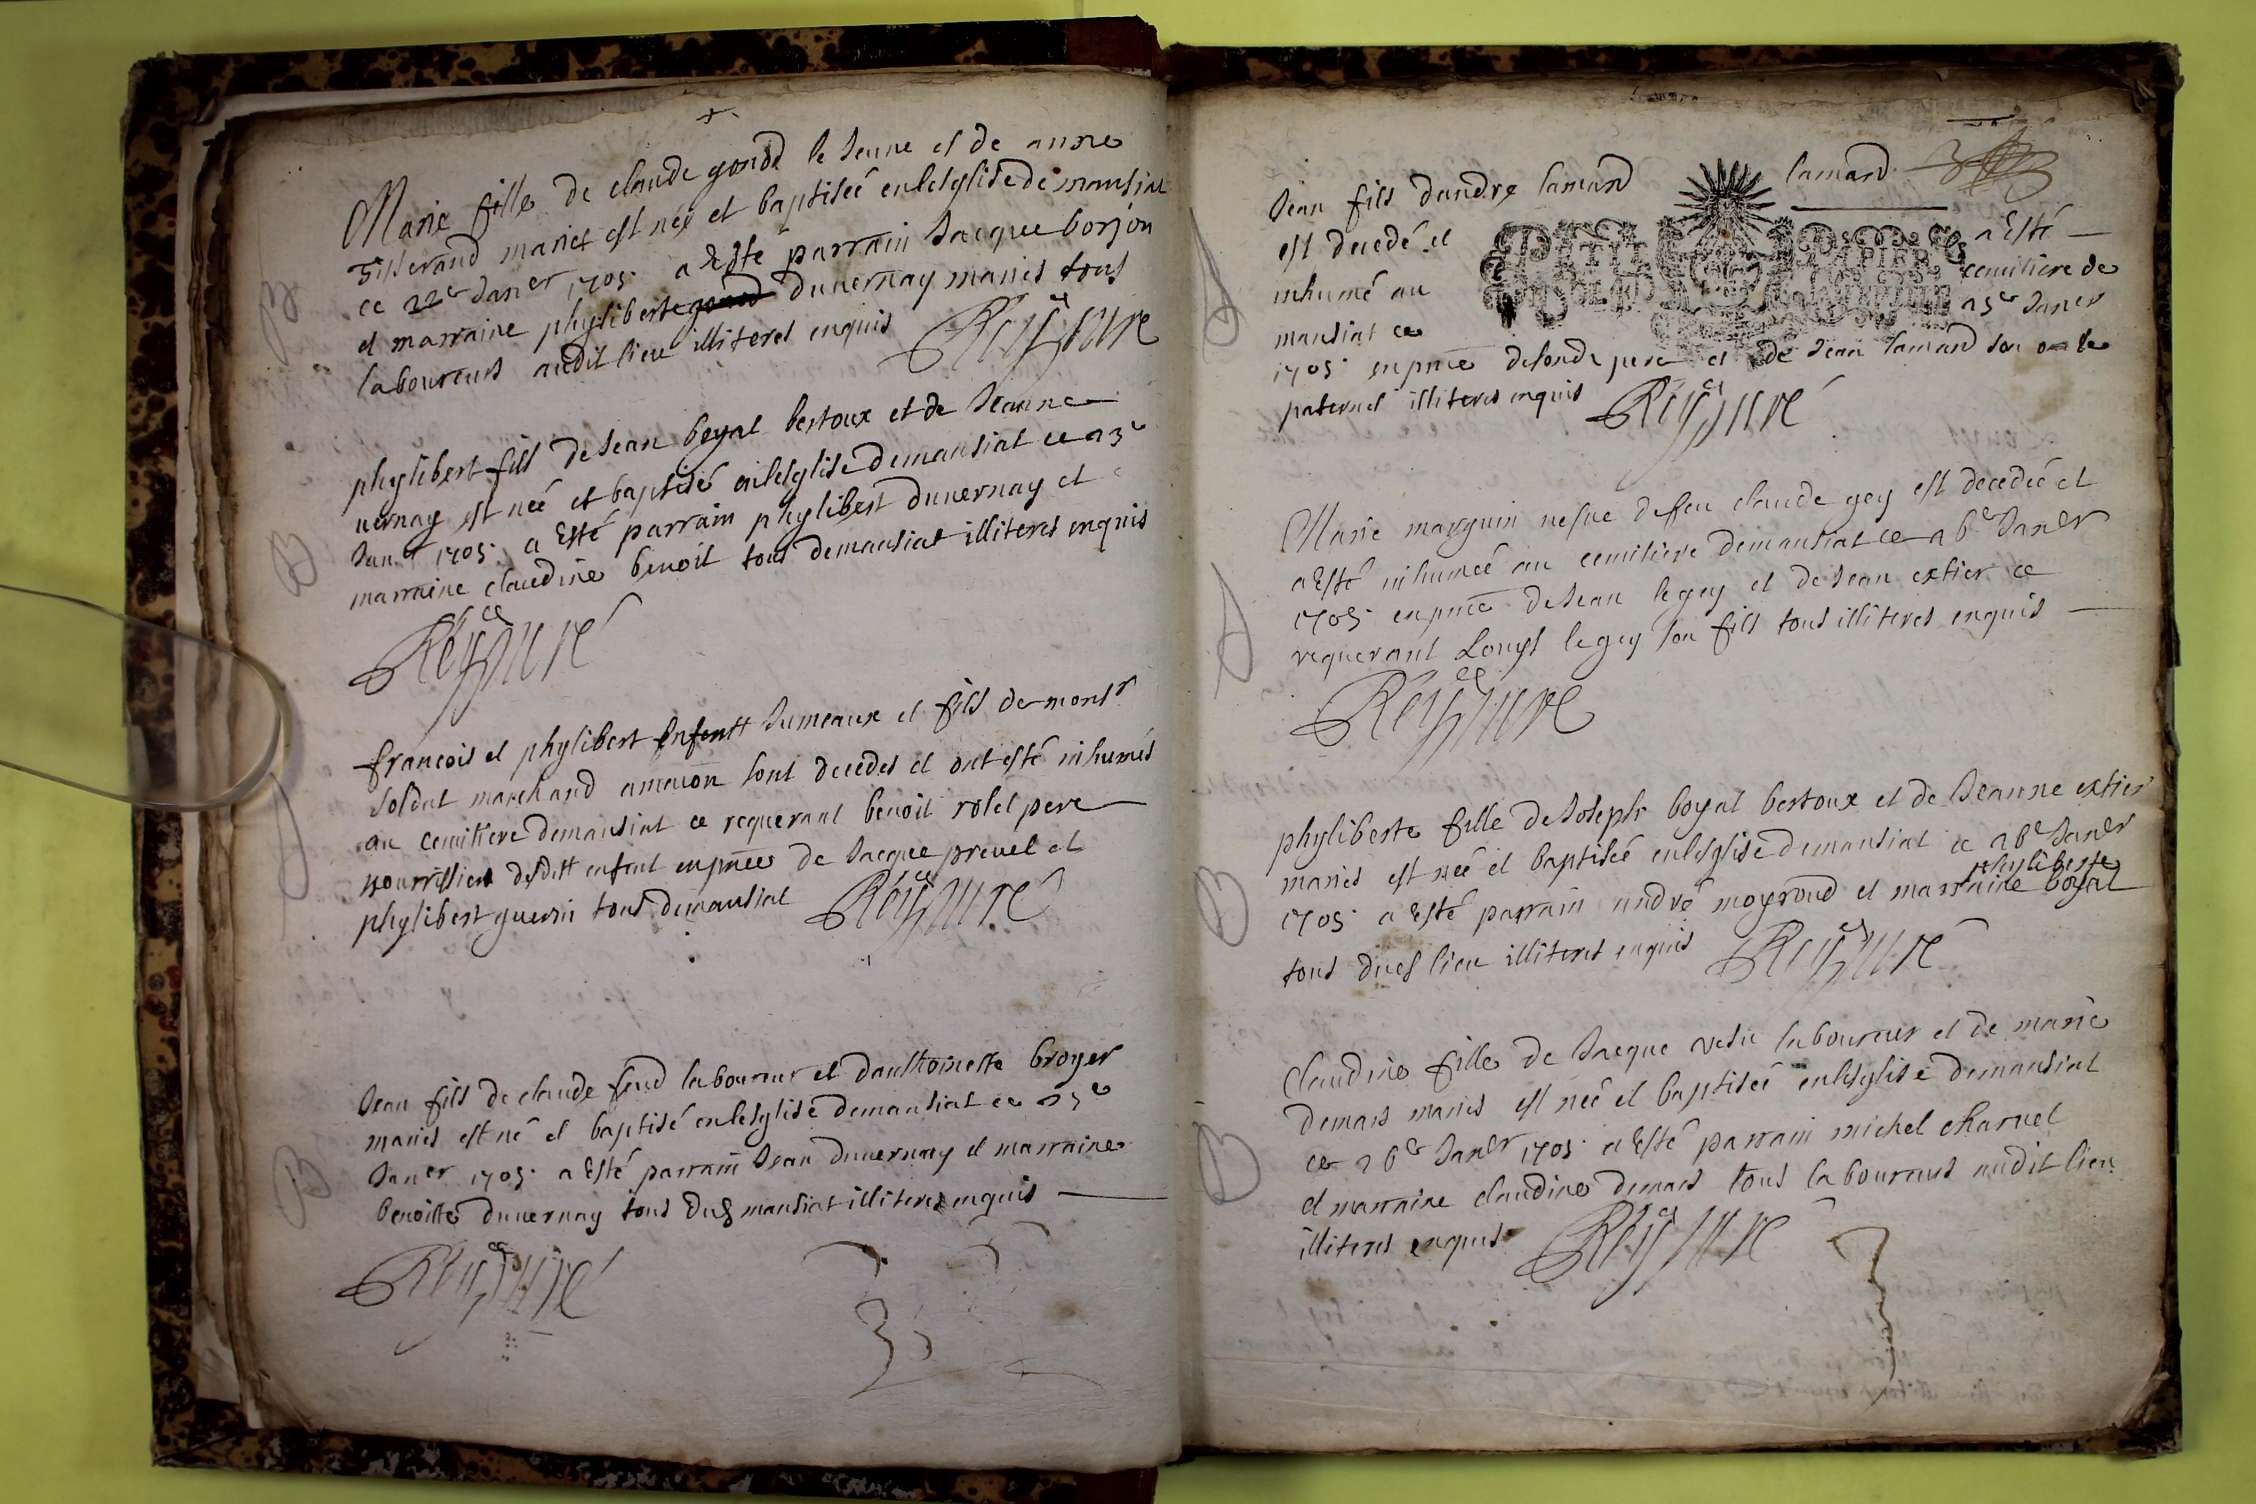 Marie fille de claude gond le Jeune et de anne
Tisserand mariés est née et baptiseé enlesglise de mansiat
ce 22e Janer 1705. a Esté parrain Jacque borjon
et marraine phyliberte duvernay mariés tous
laboureurs audit lieu illiteres enquis Rey curé
phylibert fils de Jean boyat bertoux et de Jeanne
vernay est neé et baptisé enlesglise demansiat ce 23e
Janer 1705. a Esté parrain phylibert duvernay et
marraine claudine benoit tous demansiat illiteres enquis
Rey curé
francois et phylibert Enfentt Jumeaux et fils de monsr
soldat marchand amacon sont decedes et ont esté inhumés
au cemitiere demansiat ce requerant benoit rolet pere
nourrissier desditt enfent enpnce de Jacque prevel et
phylibert guerin tous demansiat Rey curé
Jean fils de claude feud laboureur et danthoinette broyer
mariés est né et baptisé enlesglise demansiat ce 25e
Janer 1705. a Esté parrain Jean duvernay et marraine
benoitte duvernay tous dud mansiat illiteres enquis
Rey curé
Jean fils dandre lamard lamard
est decedé et a Esté
inhumé au cemitiere de
mansiat ce 25e Janer
1705. enpnce desondt pere et de Jean lamard son oncle
paternel illiteres enquis Rey curé
Marie marguin vefve defeu claude gey est decedeé et
a Esté inhumeé au cemitiere demansiat ce 26e Janer
1705. enpnce de Jean legey et de Jean extier ce
requerant Louys legey son fils tous illiteres enquis
Rey curé
phyliberte fille de Joseph boyat bertoux et de Jeanne extier
mariés est neé et baptiseé enlesglise demansiat ce 26e Janer
phyliberte
1705. a Esté parrain andré moyroud et marraine boyat
tous dud lieu illiteres enquis Rey curé
Claudine fille de Jacque vesu laboureur et de marie
demars mariés est neé et baptiseé enlesglise demansiat
ce 26e Janer 1705. a Esté parrain michel charvel
et marraine claudine demars tous laboureurs audit lieu
illiteres enquis Rey curé